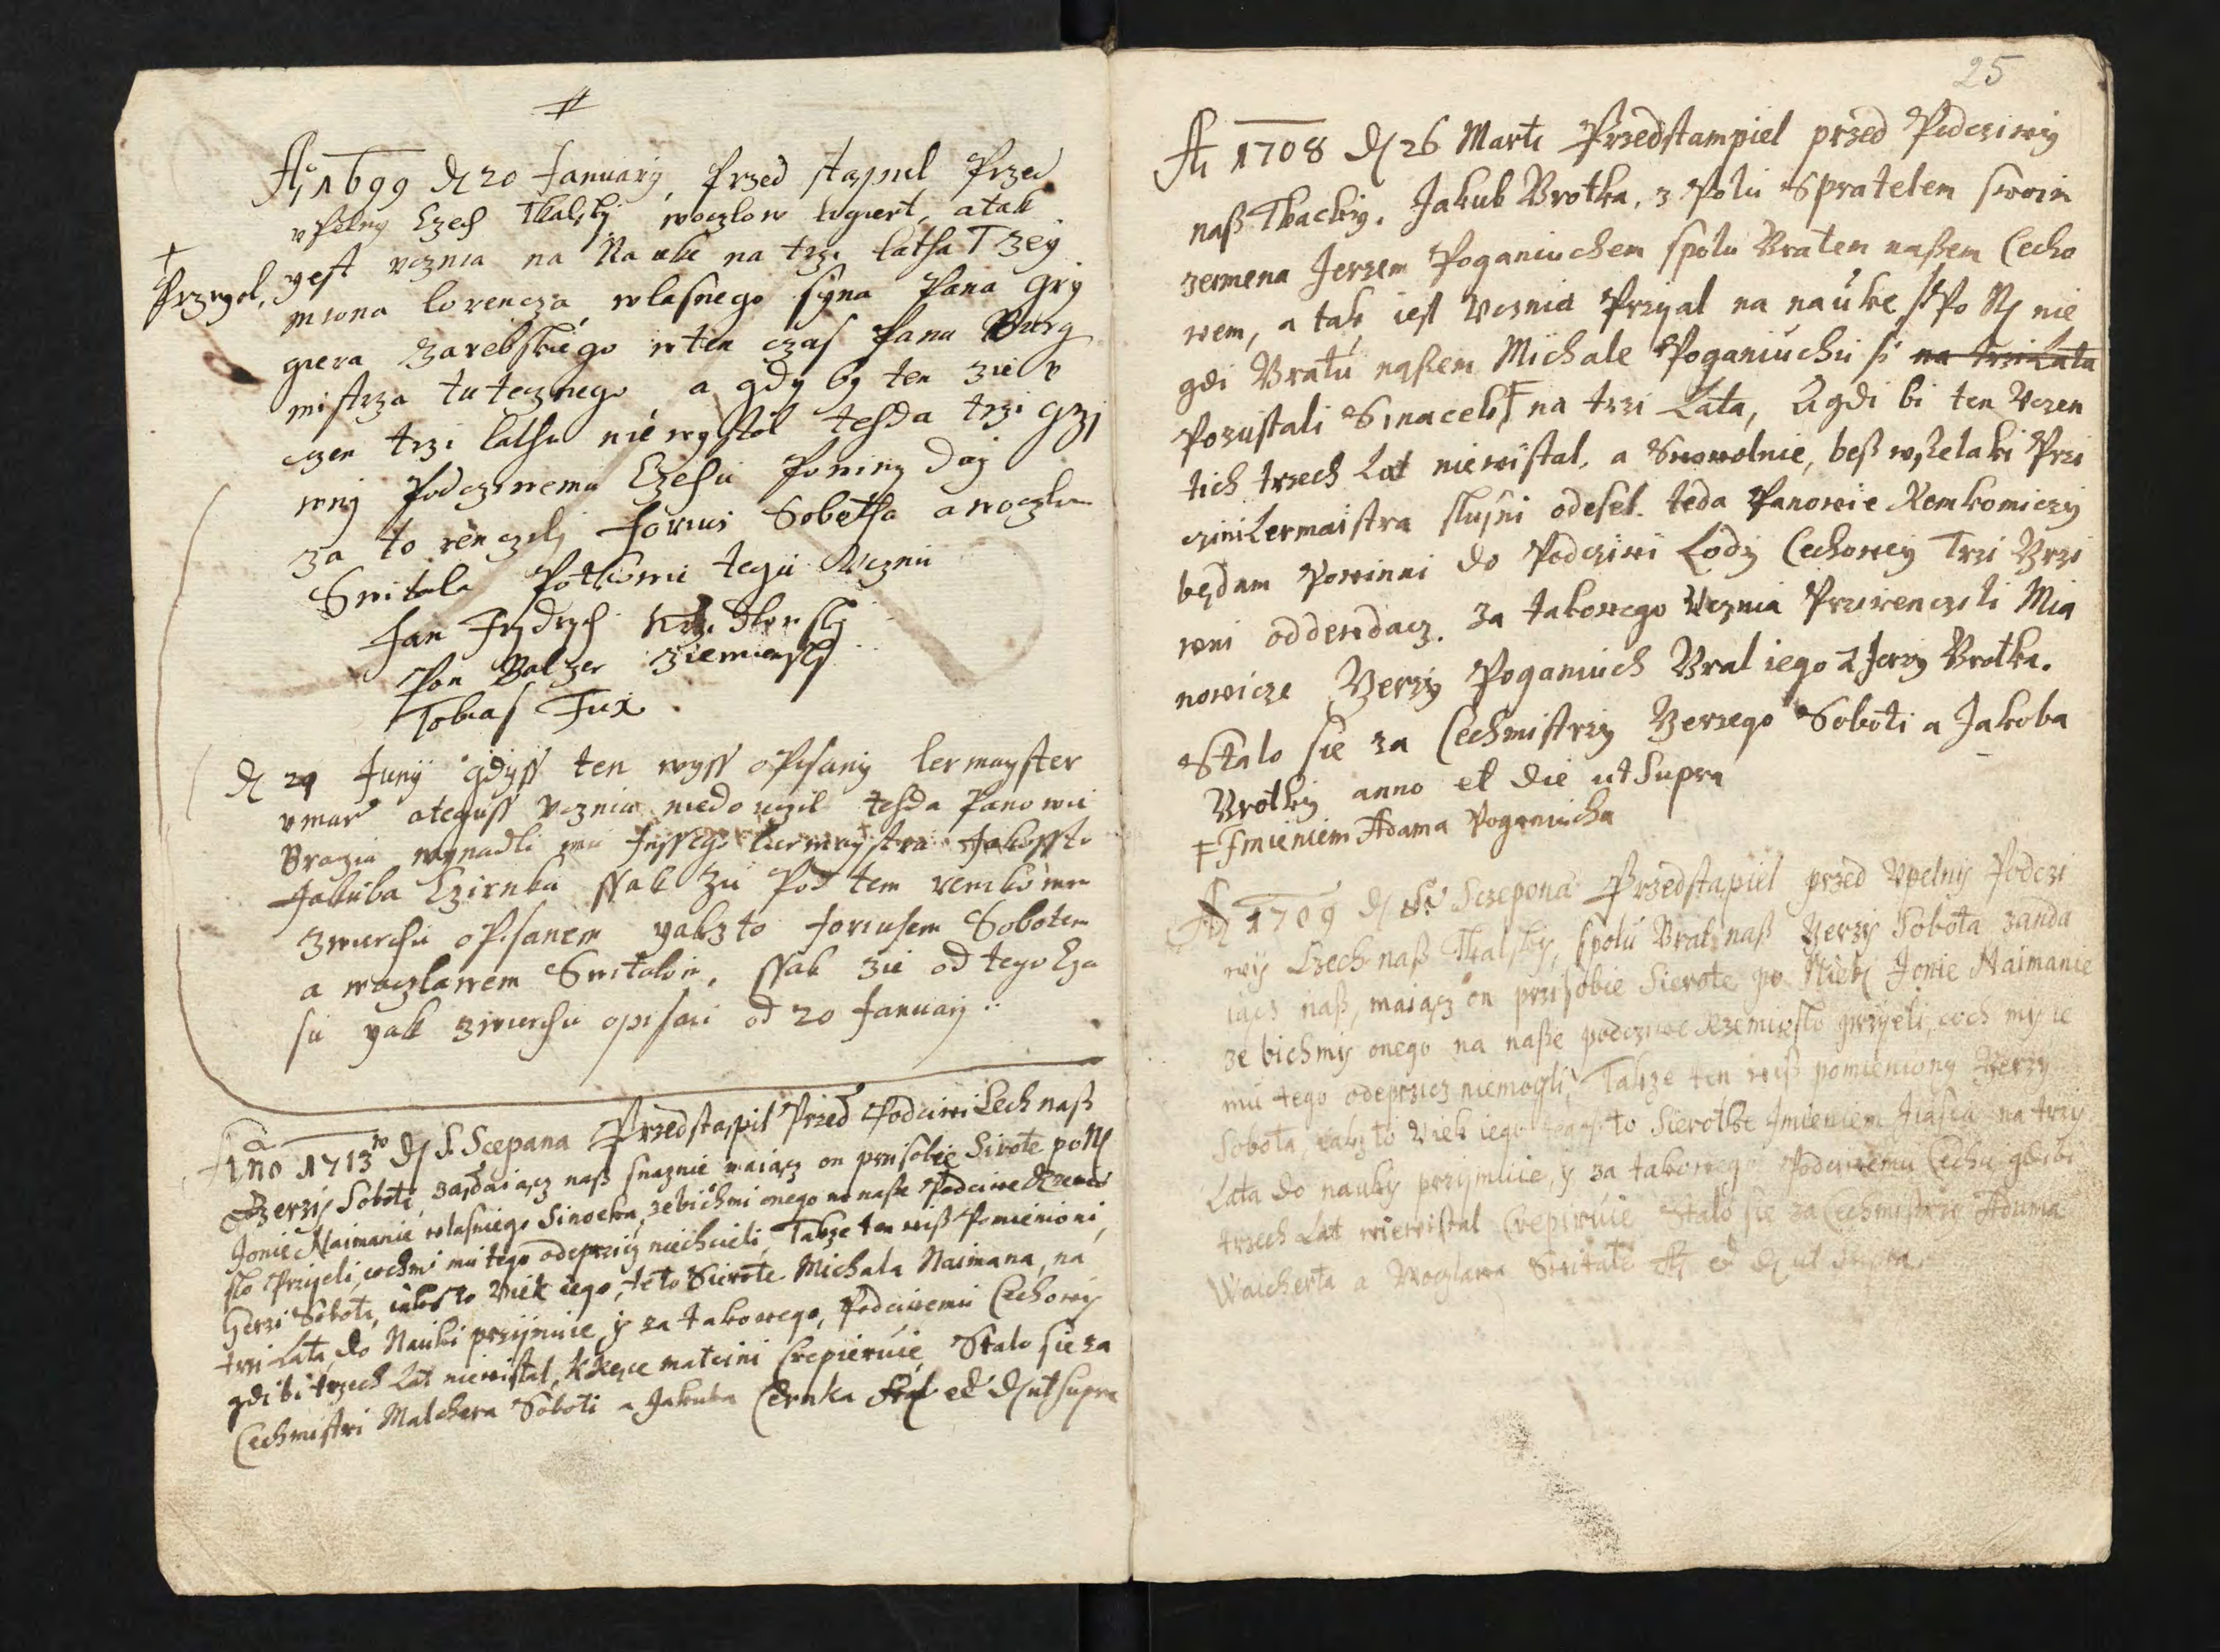 Aº 1699 D 20 January, Przed stąpul Przed
vpelny Czech Tkalsky woczlow wgiert, atak
+
Przygol,
yest vcznia na Nauke na trzi latha Tzey
miona lorencza wlasnego syna Pana Gry
giera Zarebskiego wten czas Pana Burg
mistrza tutecznego a gdy by ten zie v
czen trzi latha nie wystal tehda trzi grzi
wny Podcziwemu Czehu Poniny day
za to renczyly Jorius Sobotha a woczlaw
Switala Potkowie tegii Vcznii
Jan Frydrych
Pon Balzer Ziemiensky
Tobias Fux
D 29 Juny gdyss ten wyss oPisany lermayster
vmar a teguss vcznia niedo uczil tehda Panowie
Bracia wynadli mu Inssego lermaystra Jakossto
Jakuba Czirnka ssak zu Pod tem remkomm
zwierchu oPisanem yakzto Joriusem Sobotem
a woczlawem Switalom, ssak zie od tego Cza
su yak zwierchu opisani od 20 January
Ano 1713 D S. Scepana Przedstąpil Przed Podciwi Cech naß
Berzy Soboti, ządaiącz naß snaznie maiącz on prisobie Sirote po N
Jonie Naimanie wlasniego Sinocka, zebichmi onego na naße Podciwe Rzemies
slo Prziyeli, cochmi mu tego odeprziy niechcieli, Takze ten wiß Pomienioni
Gerzi Sobota, iakosto Viek iego, te to Sierote Michala Naimana, na
trzi Lata, do Nauki prziimuie y za takowego, Podciwemu Cechowy
gdi bi trzech Lat niewistal, kkęce mateini Crepieruie, Stalo sie za
Cechmistri Malchera Soboti a Jakuba Cernka et D ut supra
25
A 1708 D 26 Marti Przedstampiel przed Podcziwy
naß Tkacky. Jakub Brotka, z Polu S pratelem swoim
zermena Jerzem Poganiuchem spolu Bratem naßem Cecho
wem, a tak iest Vcznia Prziyal na nauke, Po N nie
gdi Bratu naßem Michale Poganiuchu na trzi Lata
Pozustali Sinacek ‡ na trzi Lata, A gdi bi ten Vczen
tich trzech Lat niewistal, a Snowolnie, beß wselaki Przi
czini Lermaistra slusni odesel. teda Panowie Remkomiczy
będam Powinni do Podcziwi Lody Cechowey Trzi Grzi
wni oddewdacz. za takowego Vcznia Prziręnczili Mia
nowicze Gerzy Poganiuch Brat iego a Jerzy Brotka.
Stalo sie za Cechmistrzy Gerzego Soboti a Jakoba
Brotky anno et die ut Supra
‡ Imieniem Adama Poganiucha
A 1709 D S. Sczepona Przedstąpiel przed Vpelny Podczi
wy Czech naß Tkalsky, spolu Brat naß Gerzy Sobota zanda
iącz naß, maiącz on prisobie Sierote po Niek Jonie Naimanie
ze bichmy onego na naße podcziwe Rzemieslo prziyeli, coch my ie
mu tego odeprzicz niemogli, Takze ten wiß pomieniony Gerzy
Sobota, iakzto Viek iego to Sierotke Imieniem na trzy
Lata do nauky prziymuie, y za takowego Podciwemu Cechu gdibi
trzech Lat niewistal Crepiruie Stalo sie za Cechmistrzy Adama
Waicherta a Woczlawa Switale A et D ut supra